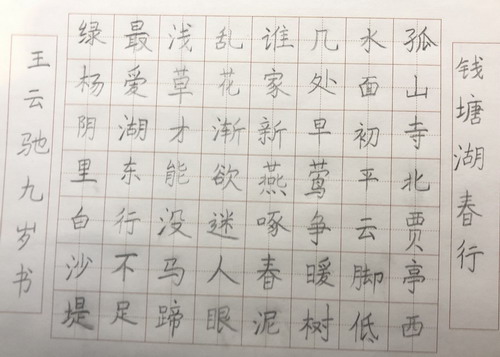 钱塘湖春行
孤山寺北贾亭西
水面初平云脚低
几处早莺争暖树
谁家新燕啄春泥
乱花渐欲迷人眼
浅草才能没马蹄
最爱湖东行不足
绿杨阴里白沙堤
王云驰九岁书